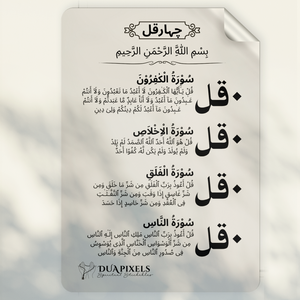 چہارقل
بِسْمِ اللَّهِ الرَّحْمَنِ الرَّحِيمِ
سُوْرَةُ الْكٰفِرُوْنَ
قُلْ يَٰٓأَيُّهَا ٱلْكَٰفِرُونَ لَآ أَعْبُدُ مَا تَعْبُدُونَ وَلَآ أَنتُمْ
عَٰبِدُونَ مَآ أَعْبُدُ وَلَآ أَنَا۠ عَابِدٌ مَّا عَبَدتُّمْ وَلَآ أَنتُمْ
عَٰبِدُونَ مَآ أَعْبُدُ لَكُمْ دِينُكُمْ وَلِىَ دِينِ
قل
سُوْرَةُ الْاِخْلَاصِ
قُلْ هُوَ ٱللَّهُ أَحَدٌ ٱللَّهُ ٱلصَّمَدُ لَمْ يَلِدْ
وَلَمْ يُولَدْ وَلَمْ يَكُن لَّهُۥ كُفُوًا أَحَدٌۢ
قل
سُوْرَةُ الْفَلَقِ
قُلْ أَعُوذُ بِرَبِّ ٱلْفَلَقِ مِن شَرِّ مَا خَلَقَ وَمِن
شَرِّ غَاسِقٍ إِذَا وَقَبَ وَمِن شَرِّ ٱلنَّفَّٰثَٰتِ
فِى ٱلْعُقَدِ وَمِن شَرِّ حَاسِدٍ إِذَا حَسَدَ
قل
سُوْرَةُ النَّاسِ
قُلْ أَعُوذُ بِرَبِّ ٱلنَّاسِ مَلِكِ ٱلنَّاسِ إِلَٰهِ ٱلنَّاسِ
مِن شَرِّ ٱلْوَسْوَاسِ ٱلْخَنَّاسِ ٱلَّذِى يُوَسْوِسُ
فِى صُدُورِ ٱلنَّاسِ مِنَ ٱلْجِنَّةِ وَٱلنَّاسِ
قل
DUAPIXELS